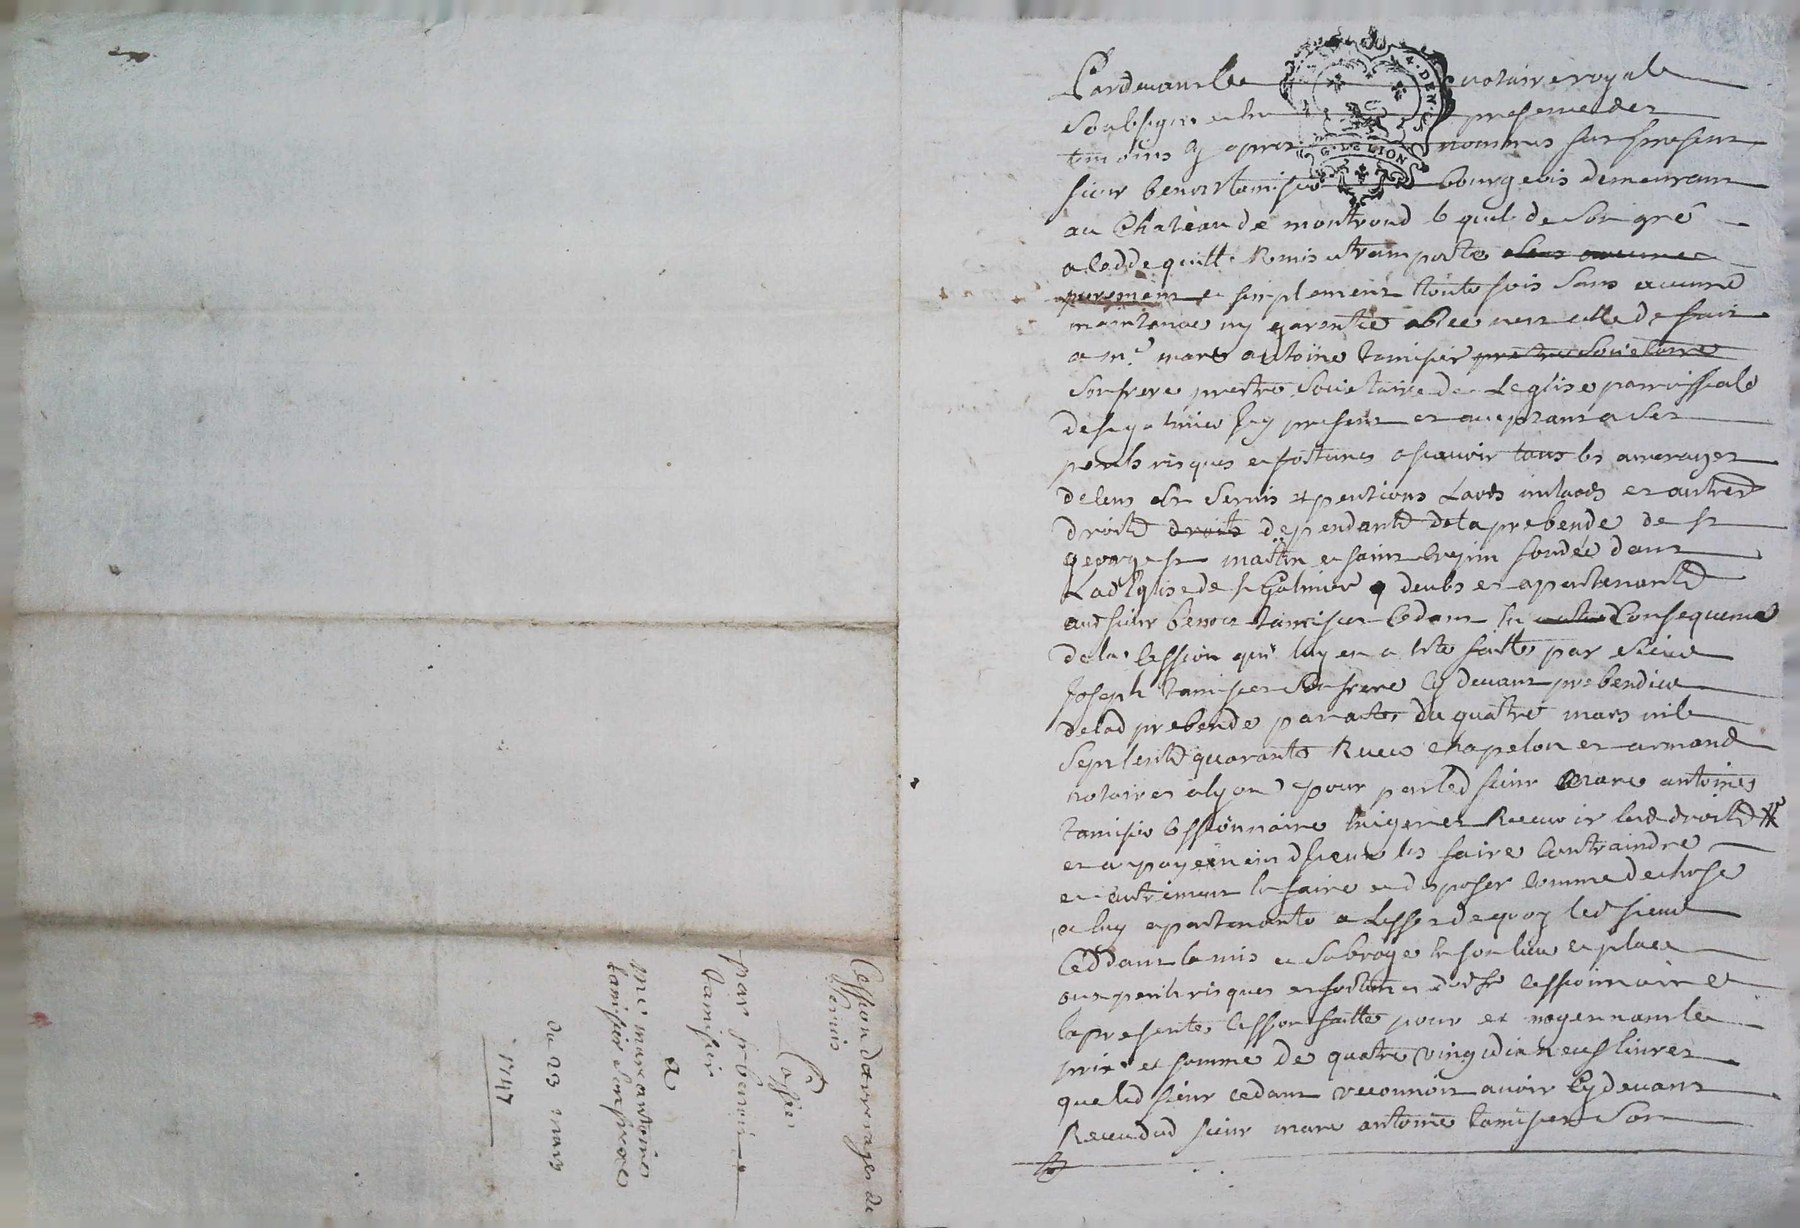 Pardevant le notaire royal
soubsigné et en presence des
temoins cy apres nommés fut present
sieur benoit tamisier bourgeois demeurant
au Chateau de montrond lequel de son gré
a cedde quitte Remis et transporte
purement et simplement toute fois sans aucune
maintenue ny garentie
a mre marc antoine tamisier pretre societaire
son frere prestre societaire de Leglise parroissiale
de st galmier icy present et acceptant a ses
perils risques et fortunes a scavoir tous les arrerages
de cens servis et pentions Laods milaods et autres
droits droits dependants de la prebende de st
george st martin et saint fondée dans
Lad Eglise de st Galmier deubs et apartenants
aud sieur benoit tamisier cedant en consequence
de la cession qui luy en a été faitte par sieur
Joseph tamisier son frere cy devant prebendier
de lad prebende par acte du quatre mars mil
sept cents quarante Receu chapelon et armand
notaires a lyon pour par led sieur marc antoine
tamisier cessionnaire exiger et Recevoir lesd droits
et a payement d'iceux les faire contraindre
et autrement en faire et disposer comme de chose
a luy apartenante a Leffet de quoy led sieur
Ceddant la mis et subrogé en son lieu et place
aux perils risques et fortunes dud sr cessionnaire
la presente cession faitte pour et moyennant le
prix et somme de quatre vingt dix neuf livres
que led sieur cedant reconnoit avoir cy devant
Receu dud sieur marc antoine tamisier son
Cession darrerages de
servis
par sr benoit
tamisier
a
mre marc antoine
tamisier son frere
du 23 mars
1747
G. DE LION
4. DEN.